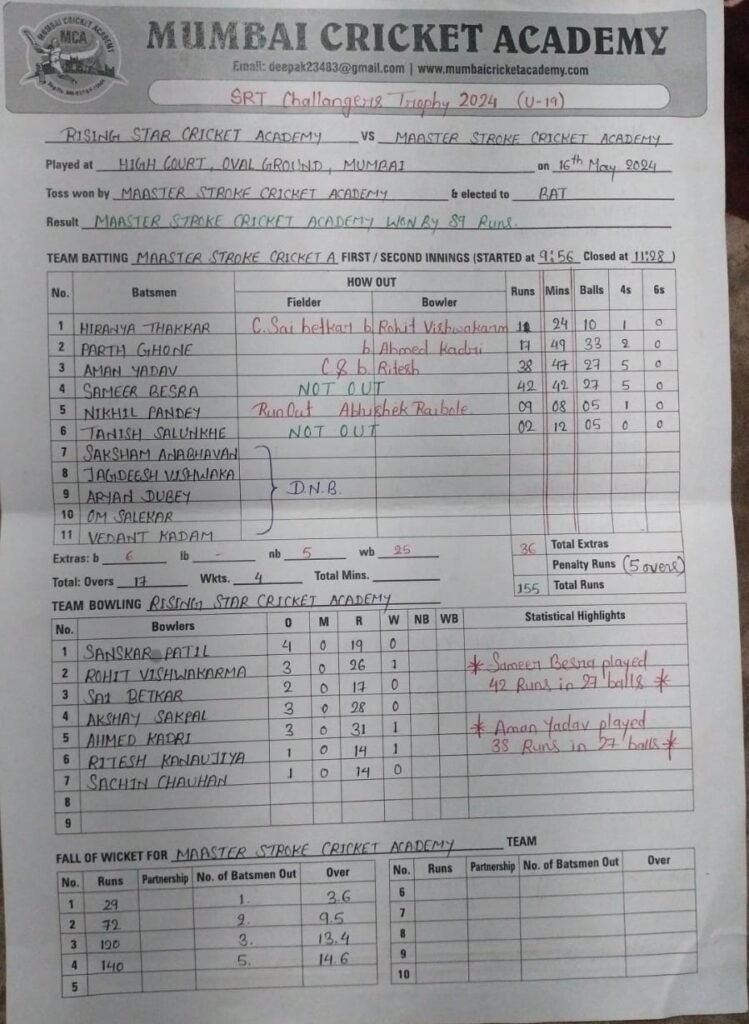 MUMBAI CRICKET ACADEMY
MCA
MUMBAI CRICKET ACADEMY
Email: deepak23483@gmail.com | www.mumbaicricketacademy.com
SRT Challangers Trophy 2024 (U-19)
RISING STAR CRICKET ACADEMY VS MAASTER STROKE CRICKET ACADEMY
Played at HIGH COURT, OVAL GROUND, MUMBAI on 16th May 2024
Toss won by MAASTER STROKE CRICKET ACADEMY & elected to BAT
Result MAASTER STROKE CRICKET ACADEMY WON BY 89 Runs.
TEAM BATTING MAASTER STROKE CRICKET A FIRST / SECOND INNINGS (STARTED at 9:56 Closed at 11:28)
No. Batsmen HOW OUT Runs Mins Balls 4s 6s
Fielder Bowler
1 HIRANYA THAKKAR C. Sai betkar b Rohit Vishwakarm 11 24 10 1 0
2 PARTH GHONE b Ahmed Kadri 17 49 33 2 0
3 AMAN YADAV C & b Ritesh 38 47 27 5 0
4 SAMEER BESRA NOT OUT 42 42 27 5 0
5 NIKHIL PANDEY Run Out Abhishek Raibole 09 08 05 1 0
6 TANISH SALUNKHE NOT OUT 02 12 05 0 0
7 SAKSHAM ANABHAVAN
8 JAGDEESH VISHWAKA
9 ARYAN DUBEY D.N.B.
10 OM SALEKAR
11 VEDANT KADAM
Extras: b 6 lb - nb 5 wb 25 36 Total Extras
Penalty Runs (5 overs)
Total: Overs 17 Wkts. 4 Total Mins. 155 Total Runs
TEAM BOWLING RISING STAR CRICKET ACADEMY
No. Bowlers O M R W NB WB Statistical Highlights
1 SANSKAR PATIL 4 0 19 0
2 ROHIT VISHWAKARMA 3 0 26 1 * Sameer Besra played
3 SAI BETKAR 2 0 17 0 42 Runs in 27 balls *
4 AKSHAY SAKPAL 3 0 28 0
5 AHMED KADRI 3 0 31 1 * Aman Yadav played
6 RITESH KANAUJIYA 1 0 14 1 38 Runs in 27 balls *
7 SACHIN CHAUHAN 1 0 14 0
8
9
FALL OF WICKET FOR MAASTER STROKE CRICKET ACADEMY TEAM
No. Runs Partnership No. of Batsmen Out Over No. Runs Partnership No. of Batsmen Out Over
1 29 1. 3.6 6
2 72 2. 9.5 7
3 120 3. 13.4 8
4 140 5. 14.6 9
5 10